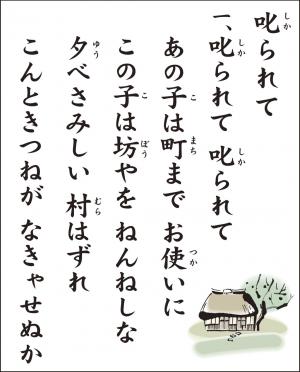 叱られて
一、叱られて 叱られて
あの子は町まで お使いに
この子は坊やを ねんねしな
夕べさみしい 村はずれ
こんときつねが なきゃせぬか